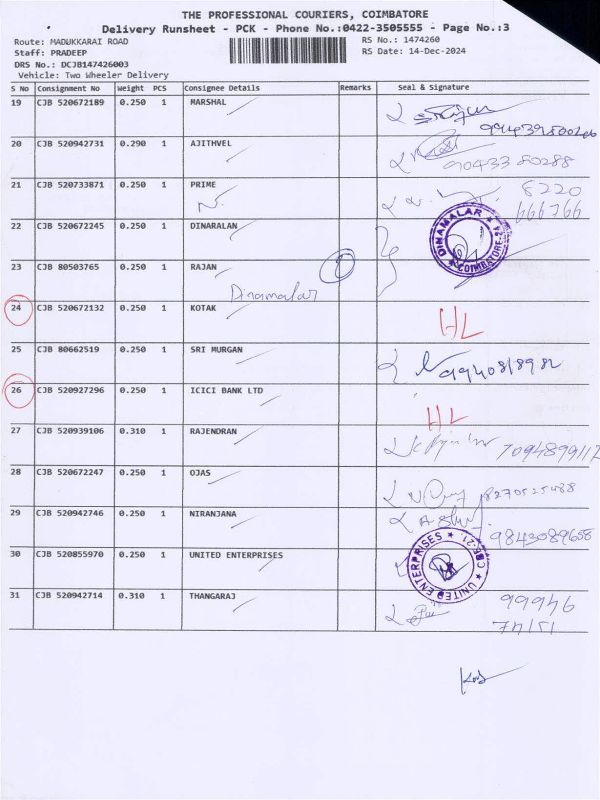 THE PROFESSIONAL COURIERS, COIMBATORE
Delivery Runsheet - PCK - Phone No.:0422-3505555 - Page No.:3
Route: MADUKKARAI ROAD RS No.: 1474260
Staff: PRADEEP RS Date: 14-Dec-2024
DRS No.: DCJB147426003
Vehicle: Two Wheeler Delivery
S No Consignment No Weight PCS Consignee Details Remarks Seal & Signature
19 CJB 520672189 0.250 1 MARSHAL
20 CJB 520942731 0.290 1 AJITHVEL
90433 80288
21 CJB 520733871 0.250 1 PRIME 8220
N. 666766
22 CJB 520672245 0.250 1 DINARALAN
DINAMALAR * COIMBATORE-24 *
23 CJB 80503765 0.250 1 RAJAN
Dinamalar
24 CJB 520672132 0.250 1 KOTAK HL
25 CJB 80662519 0.250 1 SRI MURGAN
9940818982
26 CJB 520927296 0.250 1 ICICI BANK LTD HL
27 CJB 520939106 0.310 1 RAJENDRAN
7094899117
28 CJB 520672247 0.250 1 OJAS
29 CJB 520942746 0.250 1 NIRANJANA
9843089658
30 CJB 520855970 0.250 1 UNITED ENTERPRISES
* UNITED ENTERPRISES * CBE-21
31 CJB 520942714 0.310 1 THANGARAJ 99946
74151